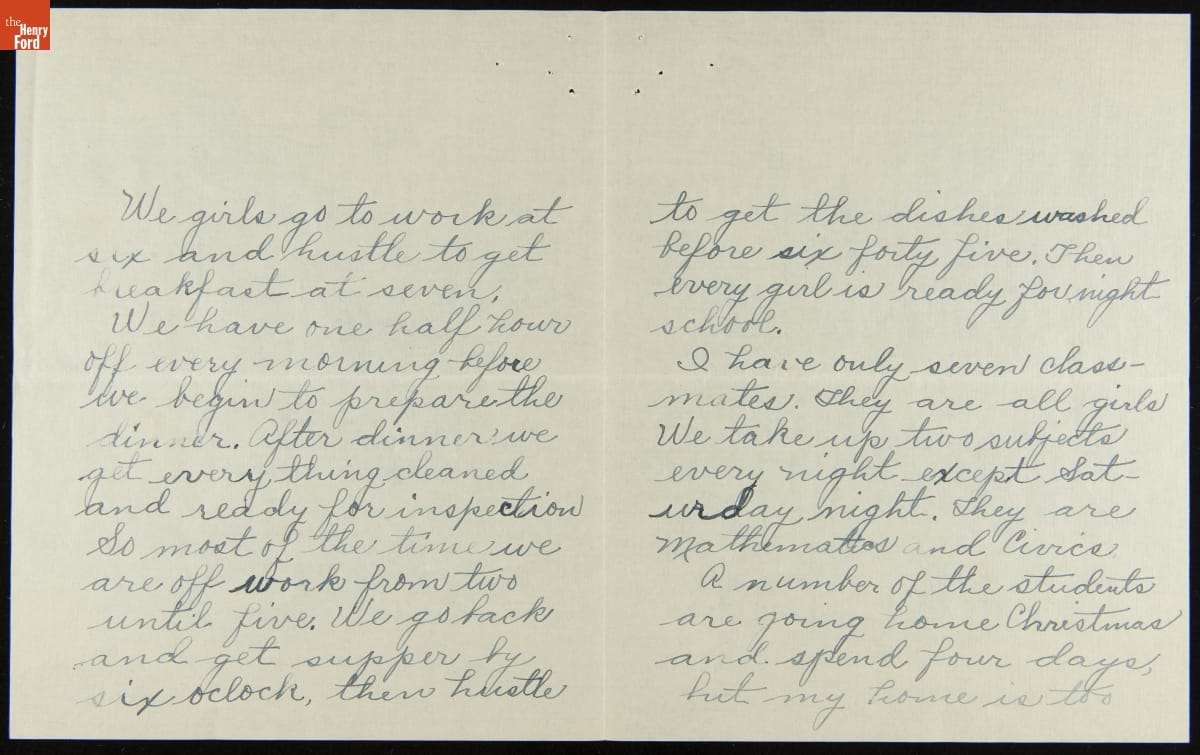 the
Henry
Ford
We girls go to work at
six and hustle to get
breakfast at seven.
We have one half hour
off every morning before
we begin to prepare the
dinner. After dinner we
get every thing cleaned
and ready for inspection
So most of the time we
are off work from two
until five. We go back
and get supper by
six oclock, then hustle
to get the dishes washed
before six forty five. Then
every girl is ready for night
school.
I have only seven class-
mates. They are all girls
We take up two subjects
every night except Sat-
urday night. They are
Mathematics and Civics
A number of the students
are going home Christmas
and spend four days,
but my home is too